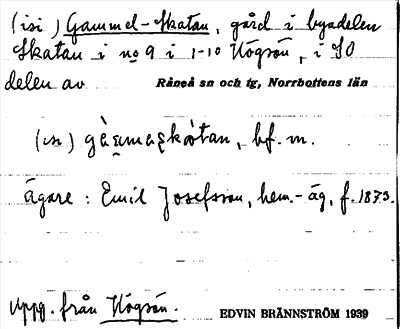 (isi) Gammel-Skatan, gård i byadelen
Skatan i no 9 i 1-10 Högsön, i SO
delen av Råneå sn och tg, Norrbottens län
(isi) , bf. m.
ägare: Emil Josefsson, hem.-äg, f. 1873.
Uppg. från Högsön. EDVIN BRÄNNSTRÖM 1939